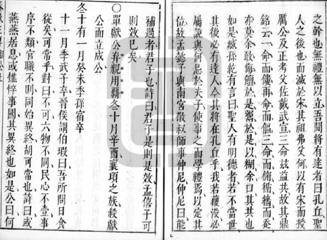 之幹也無禮無以立吾聞將有達者曰孔丘聖
人之後也而滅於宋其祖弗父何以有宋而授
厲公及正考父佐戴武宣三命茲益共故其鼎
銘云一命而僂再命而傴三命而俯循牆而走
亦莫余敢侮饘於是鬻於是以餬余口其共也
如是臧孫紇有言曰聖人有明德者若不當世
其後必有達人今其將在孔丘乎我若獲沒必
屬說與何忌於夫子使事之而學禮焉以定其
位故孟懿子與南宮敬叔師事仲尼仲尼曰能
補過者君子也詩曰君子是則是效孟僖子可
則效已矣
○單獻公棄親用羈冬十月辛酉襄頃之族殺獻
公而立成公
冬十有一月癸未季孫宿卒
十一月季武子卒晉侯謂伯瑕曰吾所問日食
從矣可常乎對曰不可六物不同民心不壹事
序不類官職不則同始異終胡可常也詩曰或
燕燕居息或憔悴事國其異終也如是公曰何